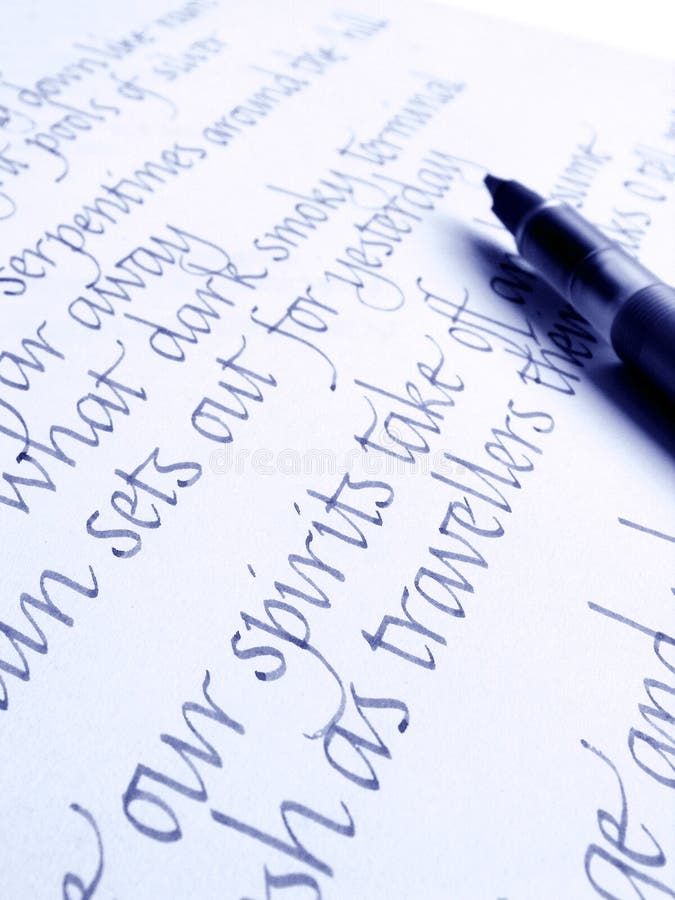 down like rain
pools of silver
serpentines around the hill
far away
what dark smoky terminal
sets out for yesterday
our spirits take off an sume
as travellers them ks o tell
ge and
dreamstime